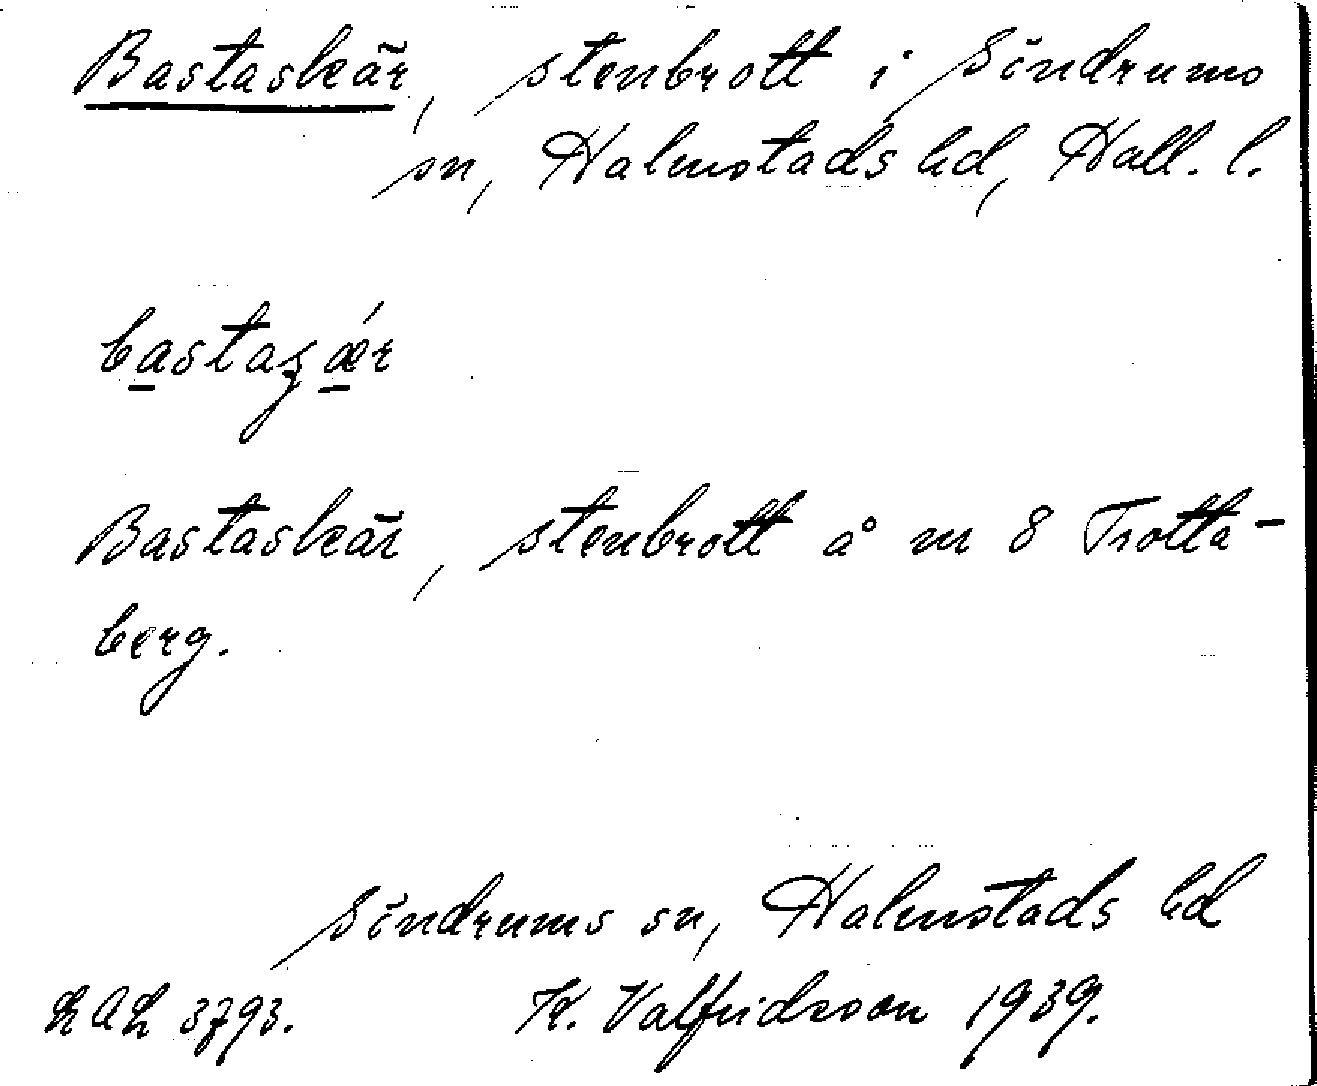 Bastaskär, stenbrott i Söndrums
sn, Halmstads hd, Hall. l.
bastaʒǽr
Bastaskär, stenbrott å nr 8 Trotta-
berg.
Söndrums sn, Halmstads hd
LAL 3793. K. Valfridsson 1939.